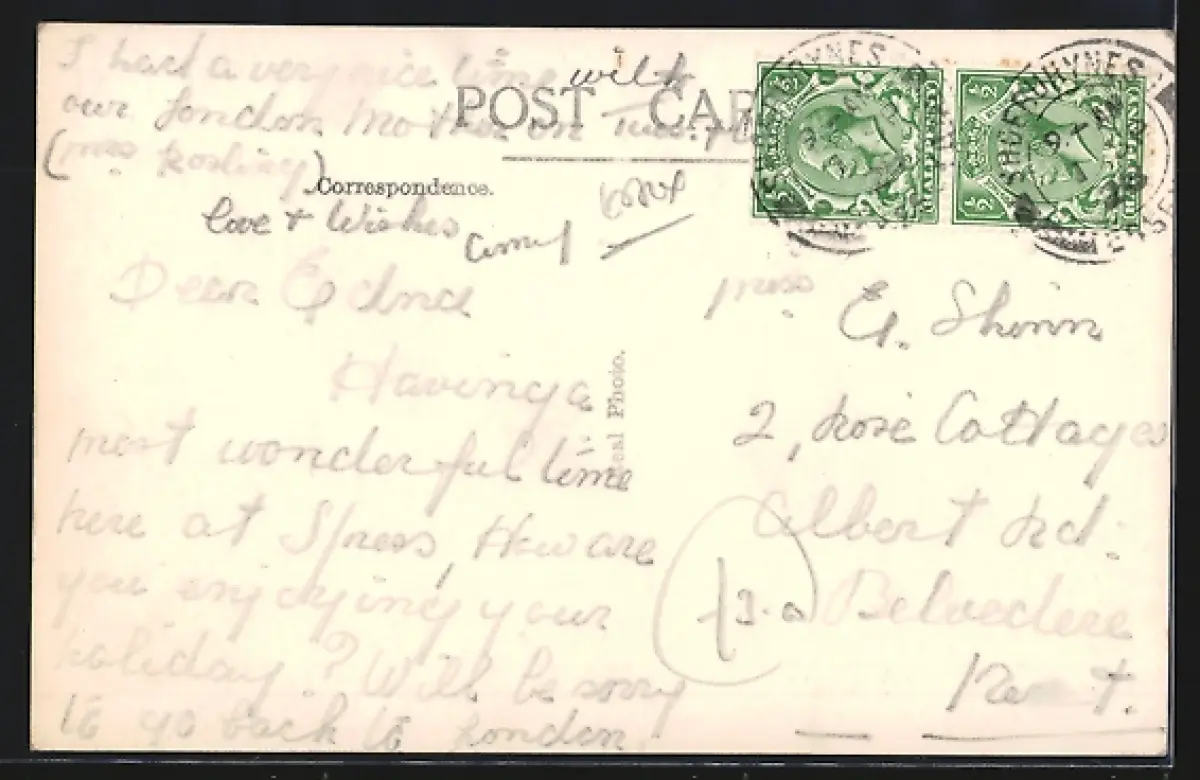 I had a very nice time with
our London Mother on Tues.
(Mrs. Rosling)
POST CAR
Correspondence.
love + Wishes
Dear Edna
Having a
most wonderful time
here at S/ness, How are
you enjoying your
holiday? Will be sorry
to go back to London
Real Photo.
SHOEBURYNESS
SHOEBURYNESS
½ ½
HALFPENNY
½ ½
HALFPENNY
Miss E. Shinn
2, Rose Cottages
Albert Rd.
Belvedere
Kent.